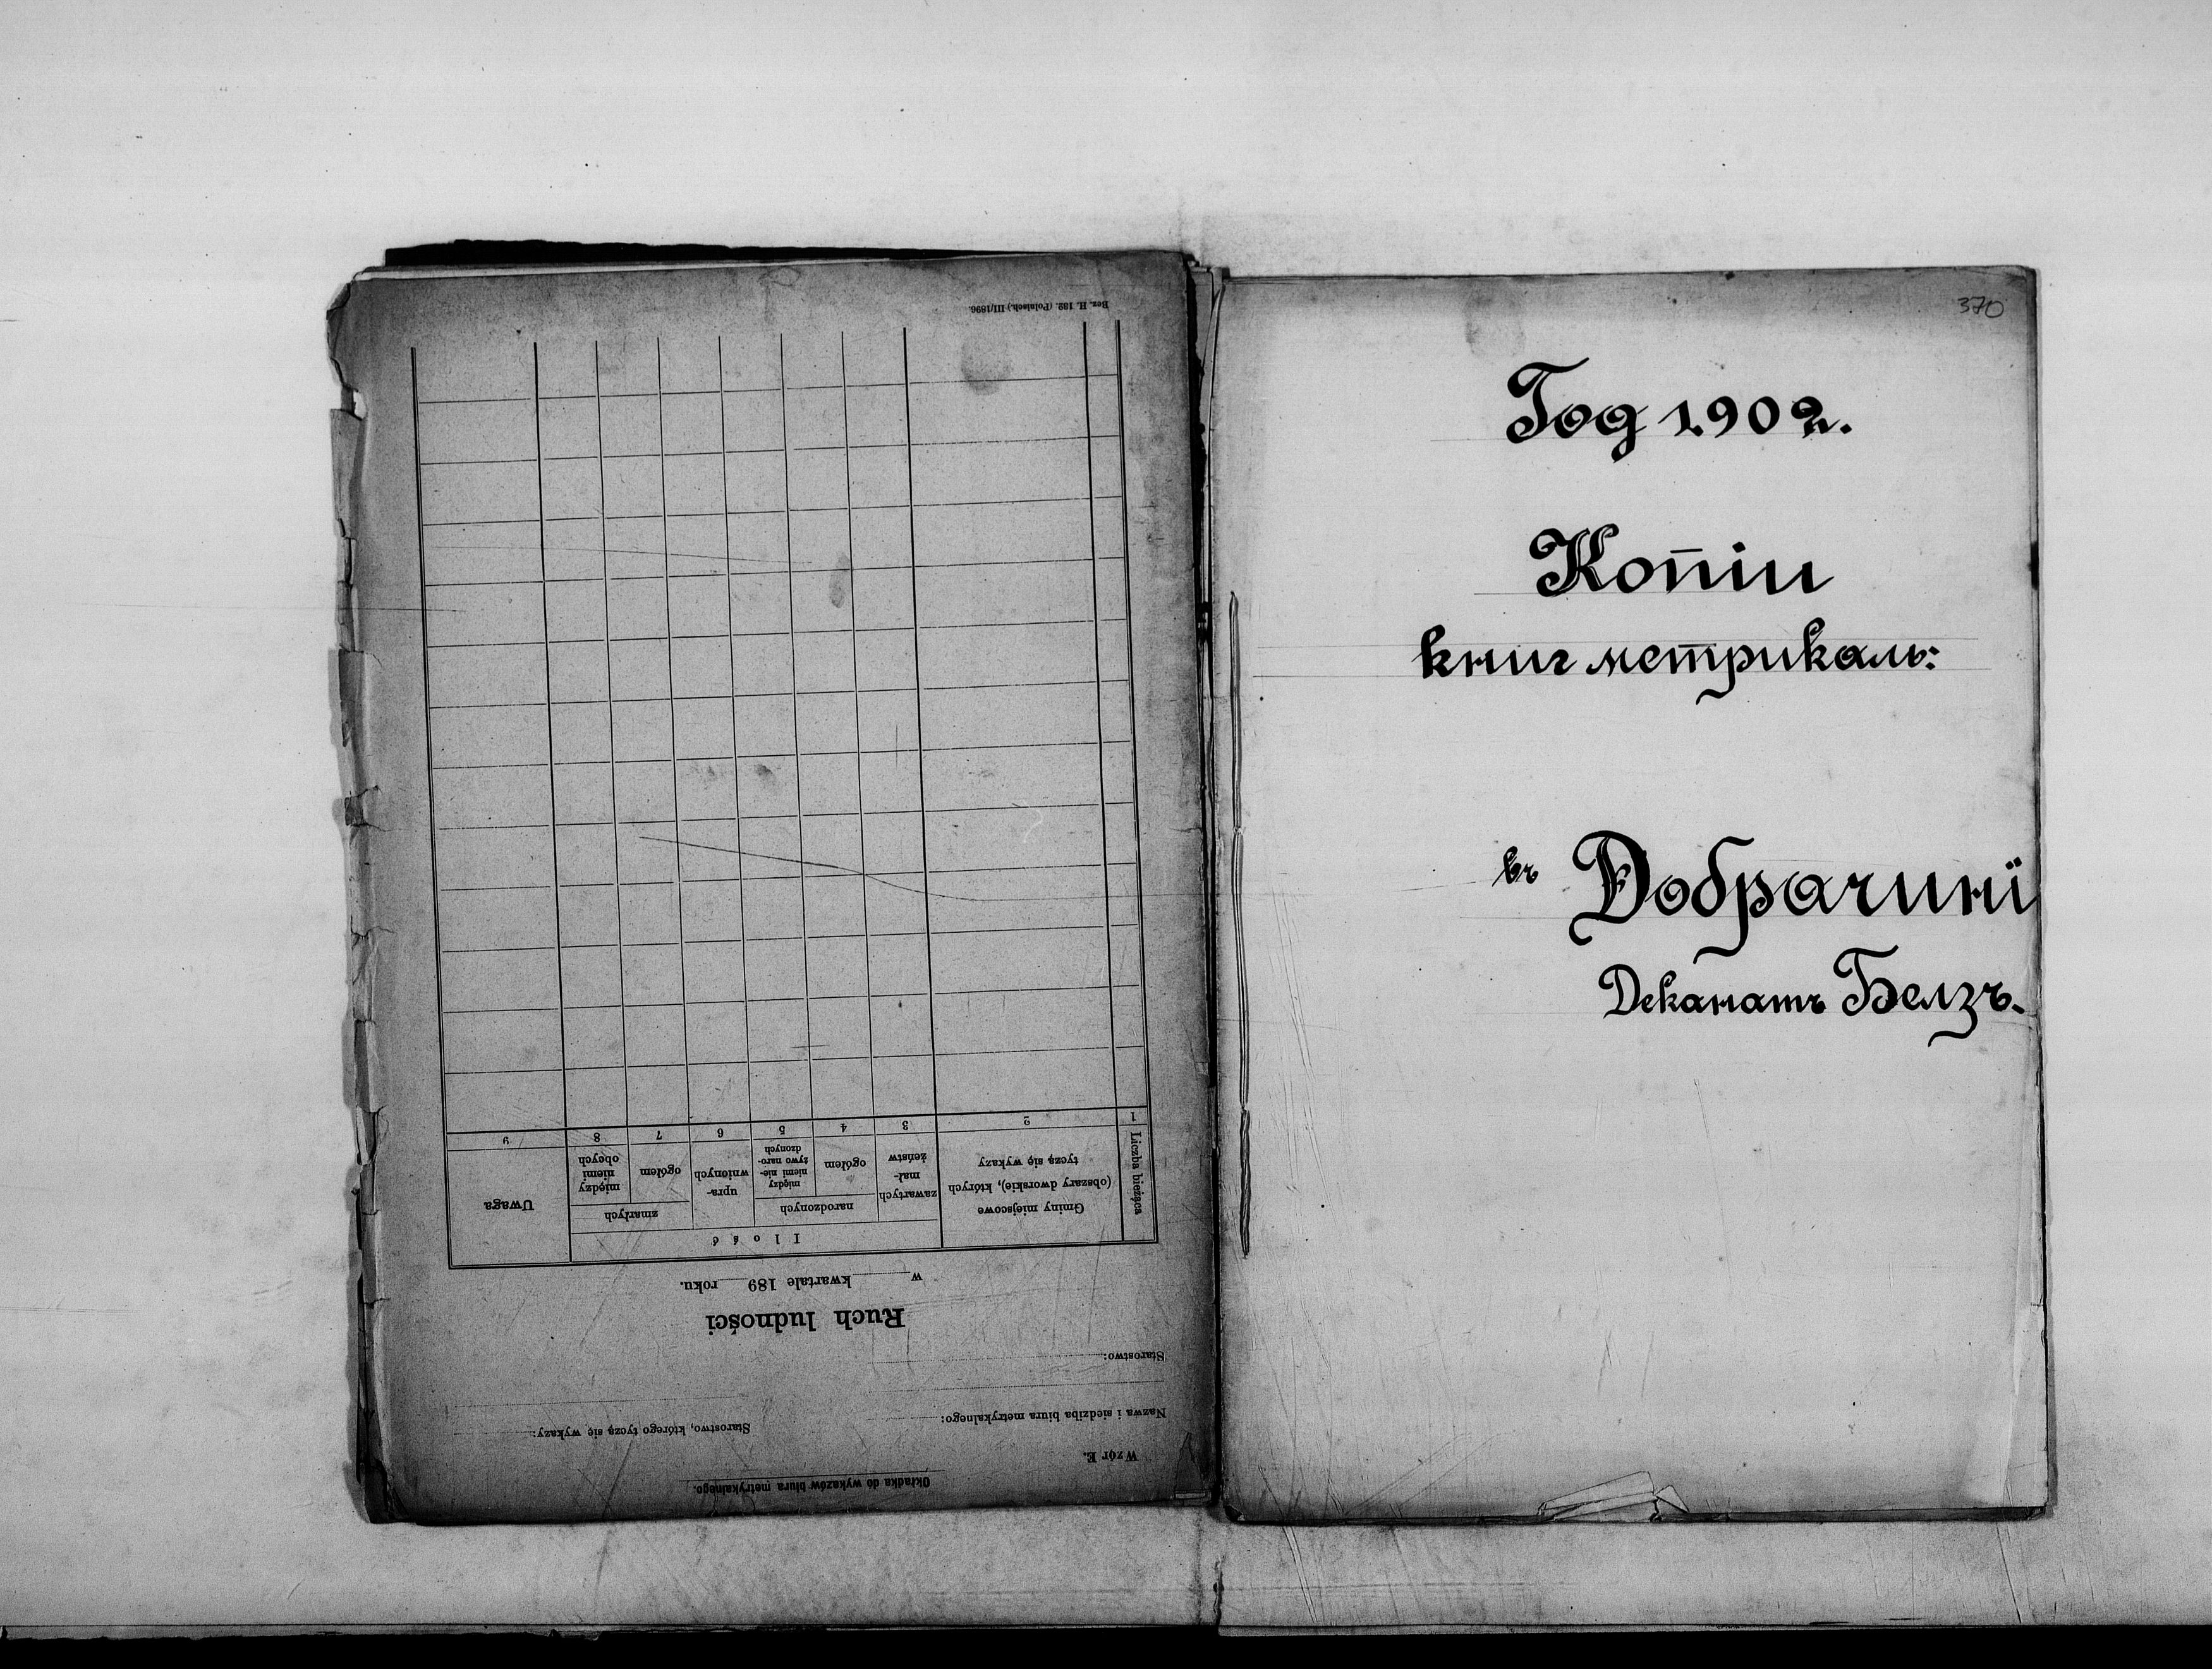 Okładka do wykazów biura metrykalnego.
Wzór E.
Nazwa i siedziba biura metrykalnego:
Starostwo, którego tyczą się wykazy:
Starostwo:
Ruch ludności
w kwartale 189 roku.
Liczba bieżąca
Gminy miejscowe
(obszary dworskie), których
tyczą się wykazy
Ilość
zawartych
mał-
żeństw
narodzonych
ogółem
między
niemi nie-
żywo naro-
dzonych
upra-
wnionych
zmarłych
ogółem
między
niemi
obcych
Uwaga
1 2 3 4 5 6 7 8 9
Bez. H. 132. (Polnisch.) III/1896.
370
Год 1902.
Копіи
книг метрикаль:
въ Добрачинї
Деканатъ Белзъ.